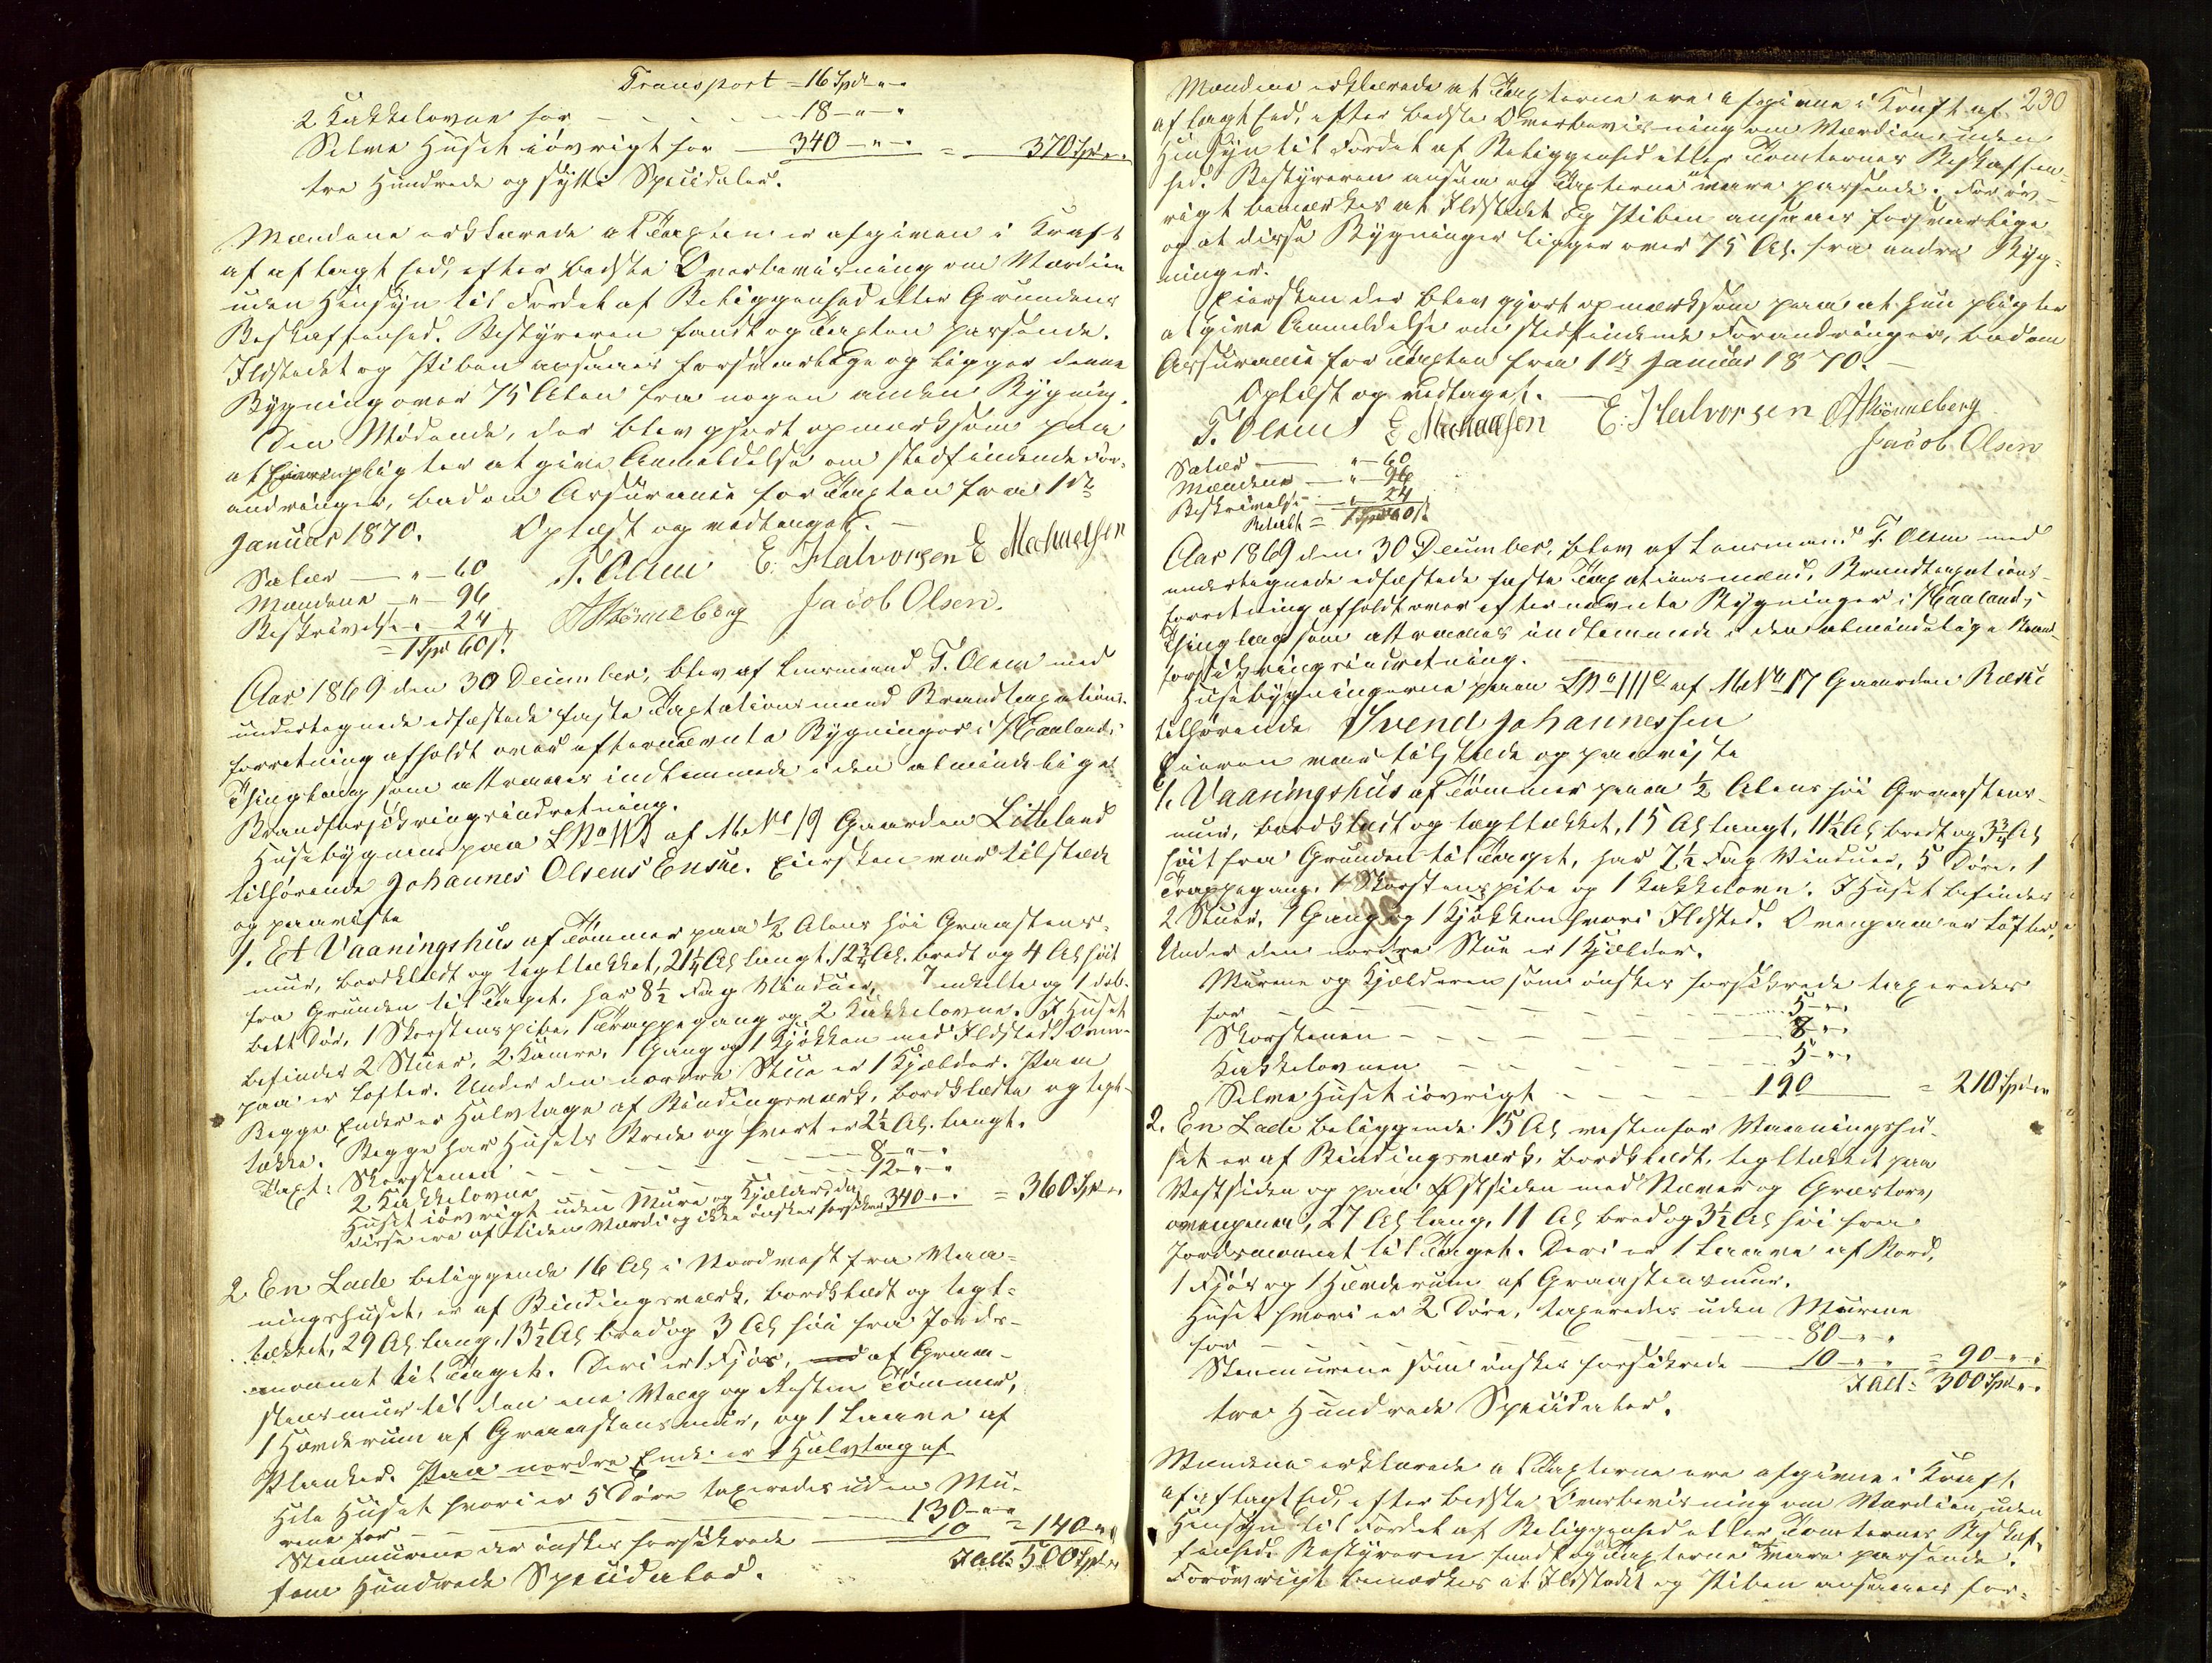 Transport = 16 Spd " "
2 Kakkelovne for - - - - - 18 - " - "
Selve Huset iøvrigt for - 340 - " - " = 370 Spd " "
tre Hundrede og sytti Speciedaler.
Mændene erklærede at Taxten er afgiven i Kraft
af aflagt Eed, efter bedste Overbeviisning om Værdien
uden Hensyn til Fordel af Beliggenhed eller Grundens
Beskaffenhed. Bestyreren fandt og Taxten passende.
Ildstedet og Piben ansaaes forsvarlige og ligger denne
Bygning over 75 Alen fra nogen anden Bygning.
Den Mødende, der blev gjort opmærksom paa
at Eieren pligter at give Anmeldelse om stedfindende For-
andringer, bad om Assurance for Taxten fra 1ste
Januar 1870. Oplæst og vedtaget. -
Salær - " - 60 T. Olsen E. Halvorsen E Mechaelsen
Mændene - " - 96
Beskrivelse " 24 A Rönneberg Jacob Olsen.
= 1 Spd 60 s.
Aar 1869 den 30 December, blev af Lensmand T. Olsen med
undertegnede edfæstede faste Taxtationsmænd Brandtaxations-
forretning afholdt over efternævnte Bygninger i Haalands
Thinglaug som attraaes indlemmede i den almindelige
Brandforsikringsindretning.
Husebygnene paa LNo 11B af MNo 19 Gaarden Litleland
tilhørende Johannes Olsens Enke. Eiersken var tilstæde
og paaviste
1. Et Vaaningshus af Tømmer paa 1/2 Alens høi Graastens-
mur, bordklædt og tegltækket, 21 1/4 Al langt, 12 3/4 Al. bredt og 4 Al høit
fra Grunden til Taget, har 8 1/2 Fag Vinduer, 7 enkelte og 1 dob-
belt Dør, 1 Skorstenspibe, 1 Trappegang og 2 Kakkelovne. I Huset
befindes 2 Stuer, 2 Kamre, 1 Gang og 1 Kjøkken med Ildsted. Oven-
paa er Lofter. Under den nordre Stue er 1 Kjelder. Paa
Begge Ender er Halvtage af Bindingsværk, bordklædte og tegl-
tækte. Begge har Husets Brede og hvert er 2 1/2 Al. langt.
Taxt: Skorstenen - - - - - 8 - " - "
2 Kakkelovne - - - - - 12 - " - "
Huset iøvrigt uden Mure og Kjelder, da
disse ere af liden Værdi og ikke ønskes forsikret 340 " " = 360 Spd " "
2 En Lade beliggende 16 Al i Nordvest fra Vaa-
ningshuset, er af Bindingsværk, bordklædt og tegl-
tækket, 29 Al lang, 13 1/2 Al bred og 3 Al høi fra Jords-
monnet til Taget. Deri er 1 Fjøs, af Graa-
stensmur til den ene Væg og Resten Tømmer,
1 Hævderum af Graastensmur, og 1 Laave af
Planker. Paa nordre Ende er 1 Halvtag af
Hele Huset hvori er 5 Døre taxeredes uden Mu-
rene for - - - - - 130 - " "
Stenmurene der ønskes forsikrede - 10 = 140 - "
Ialt 500 Spd "
fem Hundrede Speciedaler.
230
Mændene erklærede at Taxterne ere afgivne i Kraft af
aflagt Eed, efter bedste Overbeviisning om Værdien uden
Hensyn til Fordel af Beliggenhed eller Tomternes Beskaffen-
hed. Bestyreren ansaa og Taxterne være passende. Forøv-
rigt bemærkes at Ildstedet og Piben ansaaes forsvarlige
og at disse Bygninger ligger over 75 Al. fra andre Byg-
ninger.
Eiersken der blev gjort opmærksom paa at hun pligter
at give Anmeldelse om stedfindende Forandringer, bad om
Assurance for Taxten fra 1ste Januar 1870. -
Oplæst og vedtaget.
T. Olsen E Mechaelsen E. Halvorsen A Rönneberg
Jacob Olsen
Salær - " - 60
Mændene - " - 96
Beskrivelse - " 24
Betalt = 1 Spd 60 s.
Aar 1869 den 30 December, blev af Lensmand T. Olsen med
undertegnede edfæstede faste Taxationsmænd, Brandtaxations-
forretning afholdt over efternævnte Bygninger i Haalands
Thinglag som attraaes indlemmede i den almindelige Brand-
forsikringsindretning.
Husebygningerne paa LNo 111c af MNo 17 Gaarden Ræke
tilhørende Svend Johannessen
Eieren var tilstæde og paaviste
1. Vaaningshus af Tømmer paa 1/2 Alens høi Graastens-
mur, bordklædt og tegltækket, 15 Al langt, 11 1/2 Al bredt og 3 3/4 Al
høit fra Grunden til Taget, har 7 1/2 Fag Vinduer, 5 Døre, 1
Trappegang, 1 Skorstenspibe og 1 Kakkelovn. I Huset befindes
2 Stuer, 1 Gang og 1 Kjøkken hvori Ildsted. Ovenpaa er Lofter.
Under den nordre Stue er 1 Kjelder.
Murene og Kjelderen som ønskes forsikrede taxeredes
for - - - - - 5 - " "
Skorstenen - - - - - 8 - " "
Kakkelovnen - - - - - 5 - " "
Selve Huset iøvrigt - - - - 190 = 210 Spd " "
2. En Lade beliggende 15 Al vestenfor Vaaningshu-
set er af Bindingsværk, bordklædt, tegltækket paa
Vestsiden og paa Østsiden med Næver og Græstorv
ovenpaa, 27 Al lang, 11 Al bred og 3 1/2 Al høi fra
Jordsmonnet til Taget. Deri er 1 Laave af Bord,
1 Fjøs og 1 Hævderum af Graastensmur.
Huset hvori er 2 Døre, taxeredes uden Murene
for - - - - - 80 - " "
Stenmurene som ønskes forsikrede - 10 - " " = 90 - " "
Ialt = 300 Spd " "
tre Hundrede Speciedaler.
Mændene erklærede at Taxterne ere afgivne i Kraft
af aflagt Eed, efter bedste Overbeviisning om Værdien uden
Hensyn til Fordel af Beliggenhed eller Tomternes Beskaf-
fenhed. Bestyreren fandt og Taxterne at være passende.
Forøvrigt bemærkes at Ildstedet og Piben ansaaes for-